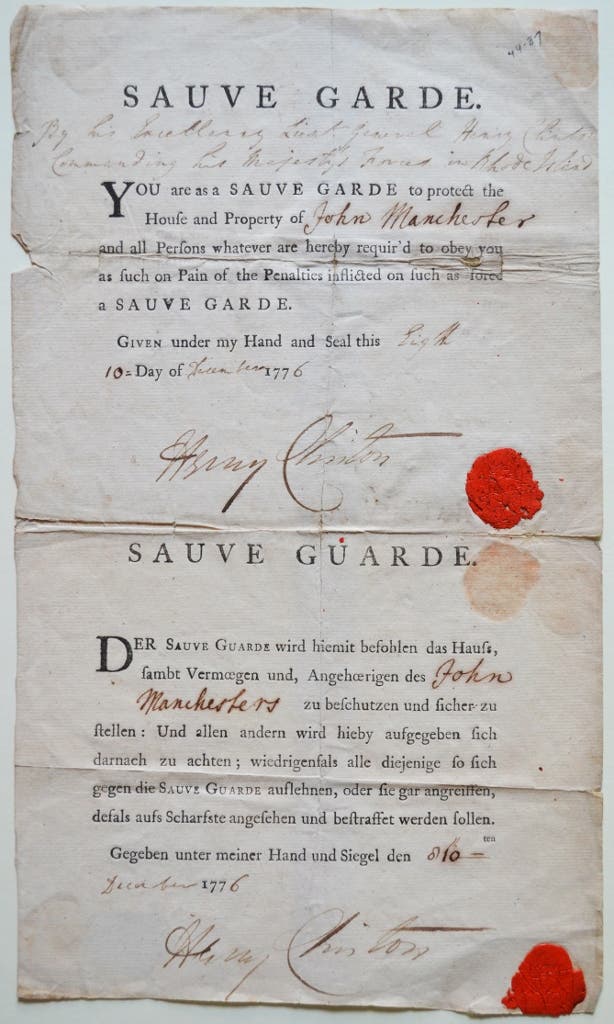 44-37
SAUVE GARDE.
By his Excellency Lieut General Henry Clinton
Commanding his Majestys Forces in Rhode Island
YOU are as a SAUVE GARDE to protect the
Houſe and Property of John Manchester
and all Perſons whatever are hereby requir'd to obey you
as ſuch on Pain of the Penalties inflicted on ſuch as
a SAUVE GARDE.
GIVEN under my Hand and Seal this Eight
10= Day of December 1776
Henry Clinton
SAUVE GUARDE.
DER SAUVE GUARDE wird hiemit befohlen das Hauſs,
ſambt Vermœgen und, Angehœrigen des John
Manchesters zu beſchutzen und ſicher zu
ſtellen: Und allen andern wird hieby aufgegeben ſich
darnach zu achten; wiedrigenfals alle diejenige ſo ſich
gegen die SAUVE GUARDE auflehnen, oder ſie gar angreiffen,
deſals aufs Scharfste angeſehen und beſtraffet werden ſollen.
Gegeben unter meiner Hand und Siegel den 810 ten
December 1776
Henry Clinton